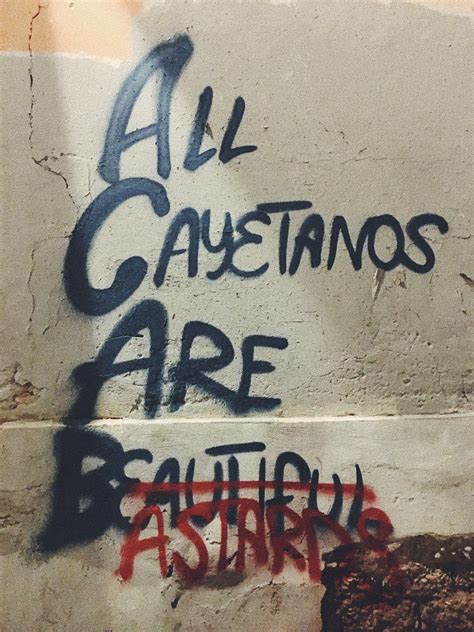 ALL
CAYETANOS
ARE
BEAUTIFUL
ASTARDOS